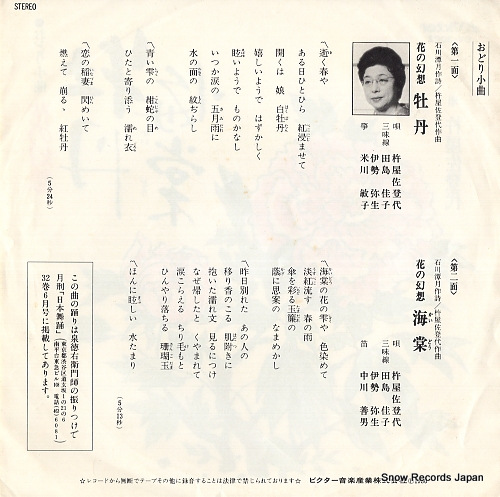 STEREO
おどり小曲
〈第一面〉
石川潭月作詩／杵屋佐登代作曲
花の幻想 牡丹
唄 杵屋佐登代
三味線 田島佳子
伊勢弥生
箏 米川敏子
〽逝く春や
ある日ひととき 紅浸ませて
開くは 娘 白牡丹
嬉しいようで はずかしく
眩いようで ものかなし
いつか涙の 五月雨に
水の面の 紋ぢらし
〽青い雫の 紺蛇の目
ひたと寄り添う 濡れ衣
〽恋の稲妻 閃めいて
燃えて 崩るゝ 紅牡丹
（5分24秒）
〈第二面〉
石川潭月作詩／杵屋佐登代作曲
花の幻想 海棠
かい どう
唄 杵屋佐登代
三味線 田島佳子
伊勢弥生
笛 中川善男
〽海棠の花の雫や 色染めて
淡紅流す 春の雨
傘を彩る玉簾の
蔭に思案の なまめかし
〽昨日別れた あの人の
移り香のこる 肌附きに
抱いた濡れ文 見るにつけ
なぜ帰したと くやまれて
涙こらえる ちり毛もと
ひんやり落ちる 珊瑚玉
〽ほんに眩しい 水たまり
（5分13秒）
この曲の踊りは泉徳右衛門師の振りつけで
月刊『日本舞踊』
32巻6月号に掲載してあります。
☆レコードから無断でテープその他に録音することは法律で禁じられております☆
ビクター音楽産業株式会社
Snow Records Japan